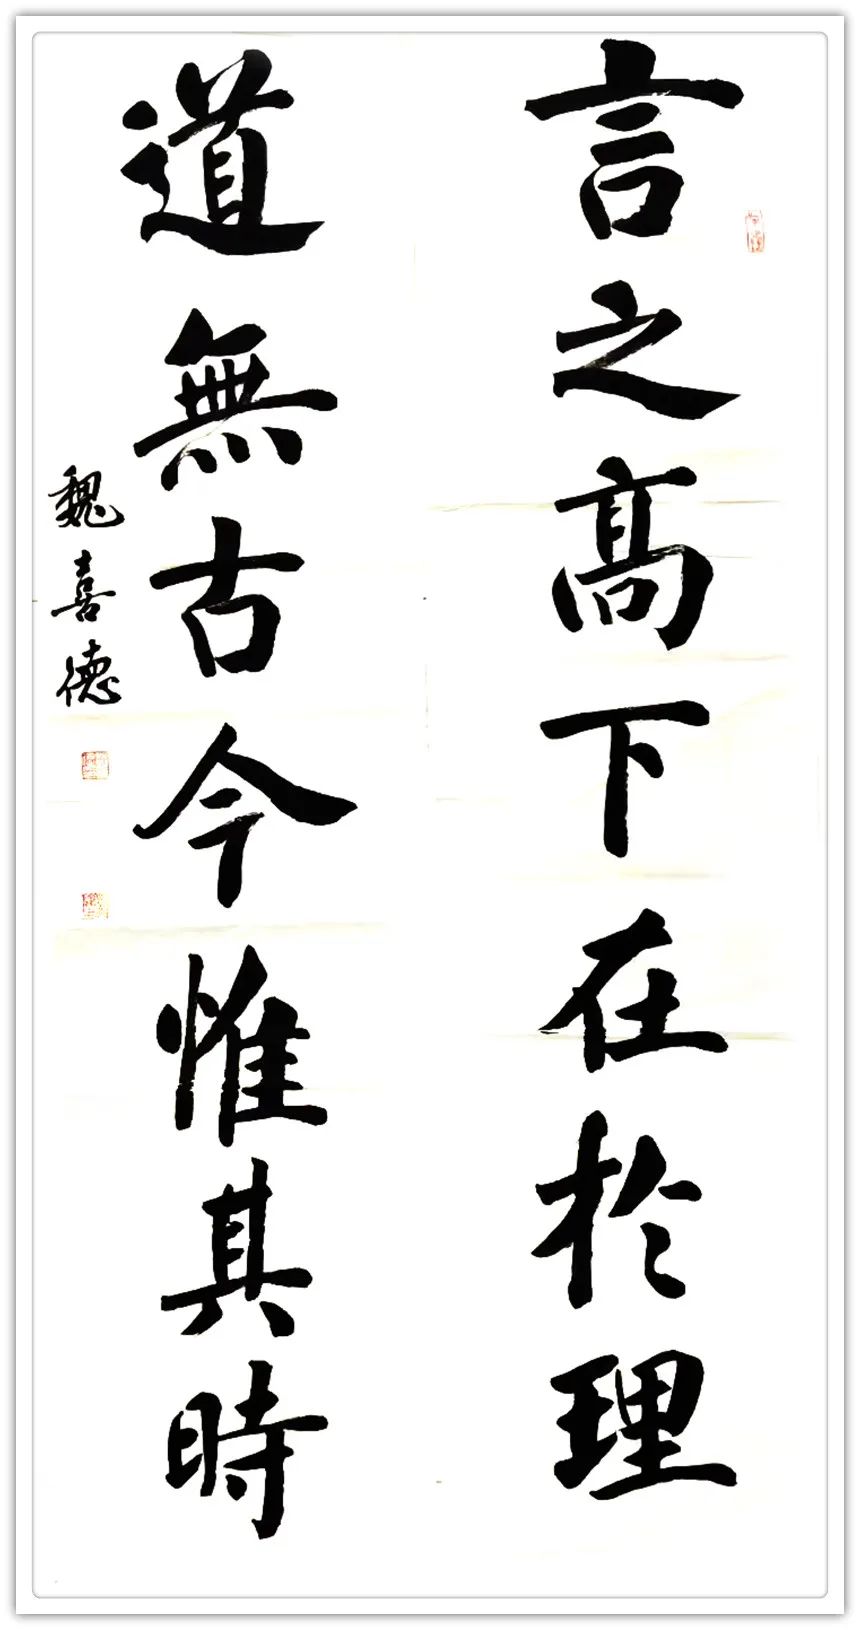 言之高下在於理
道無古今惟其時
魏喜德